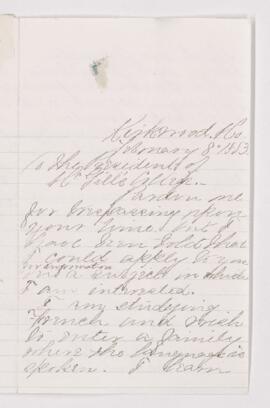 Kirkwood, Mo
February 8th 1883.
To The President of
Mc Gill College.
Pardon me
for trespassing upon
your time but I
have been told that
I could apply to you
for information
on a subject in which
I am interested.
I am studying
French and wish
to enter a family
where the language is
spoken. I learn